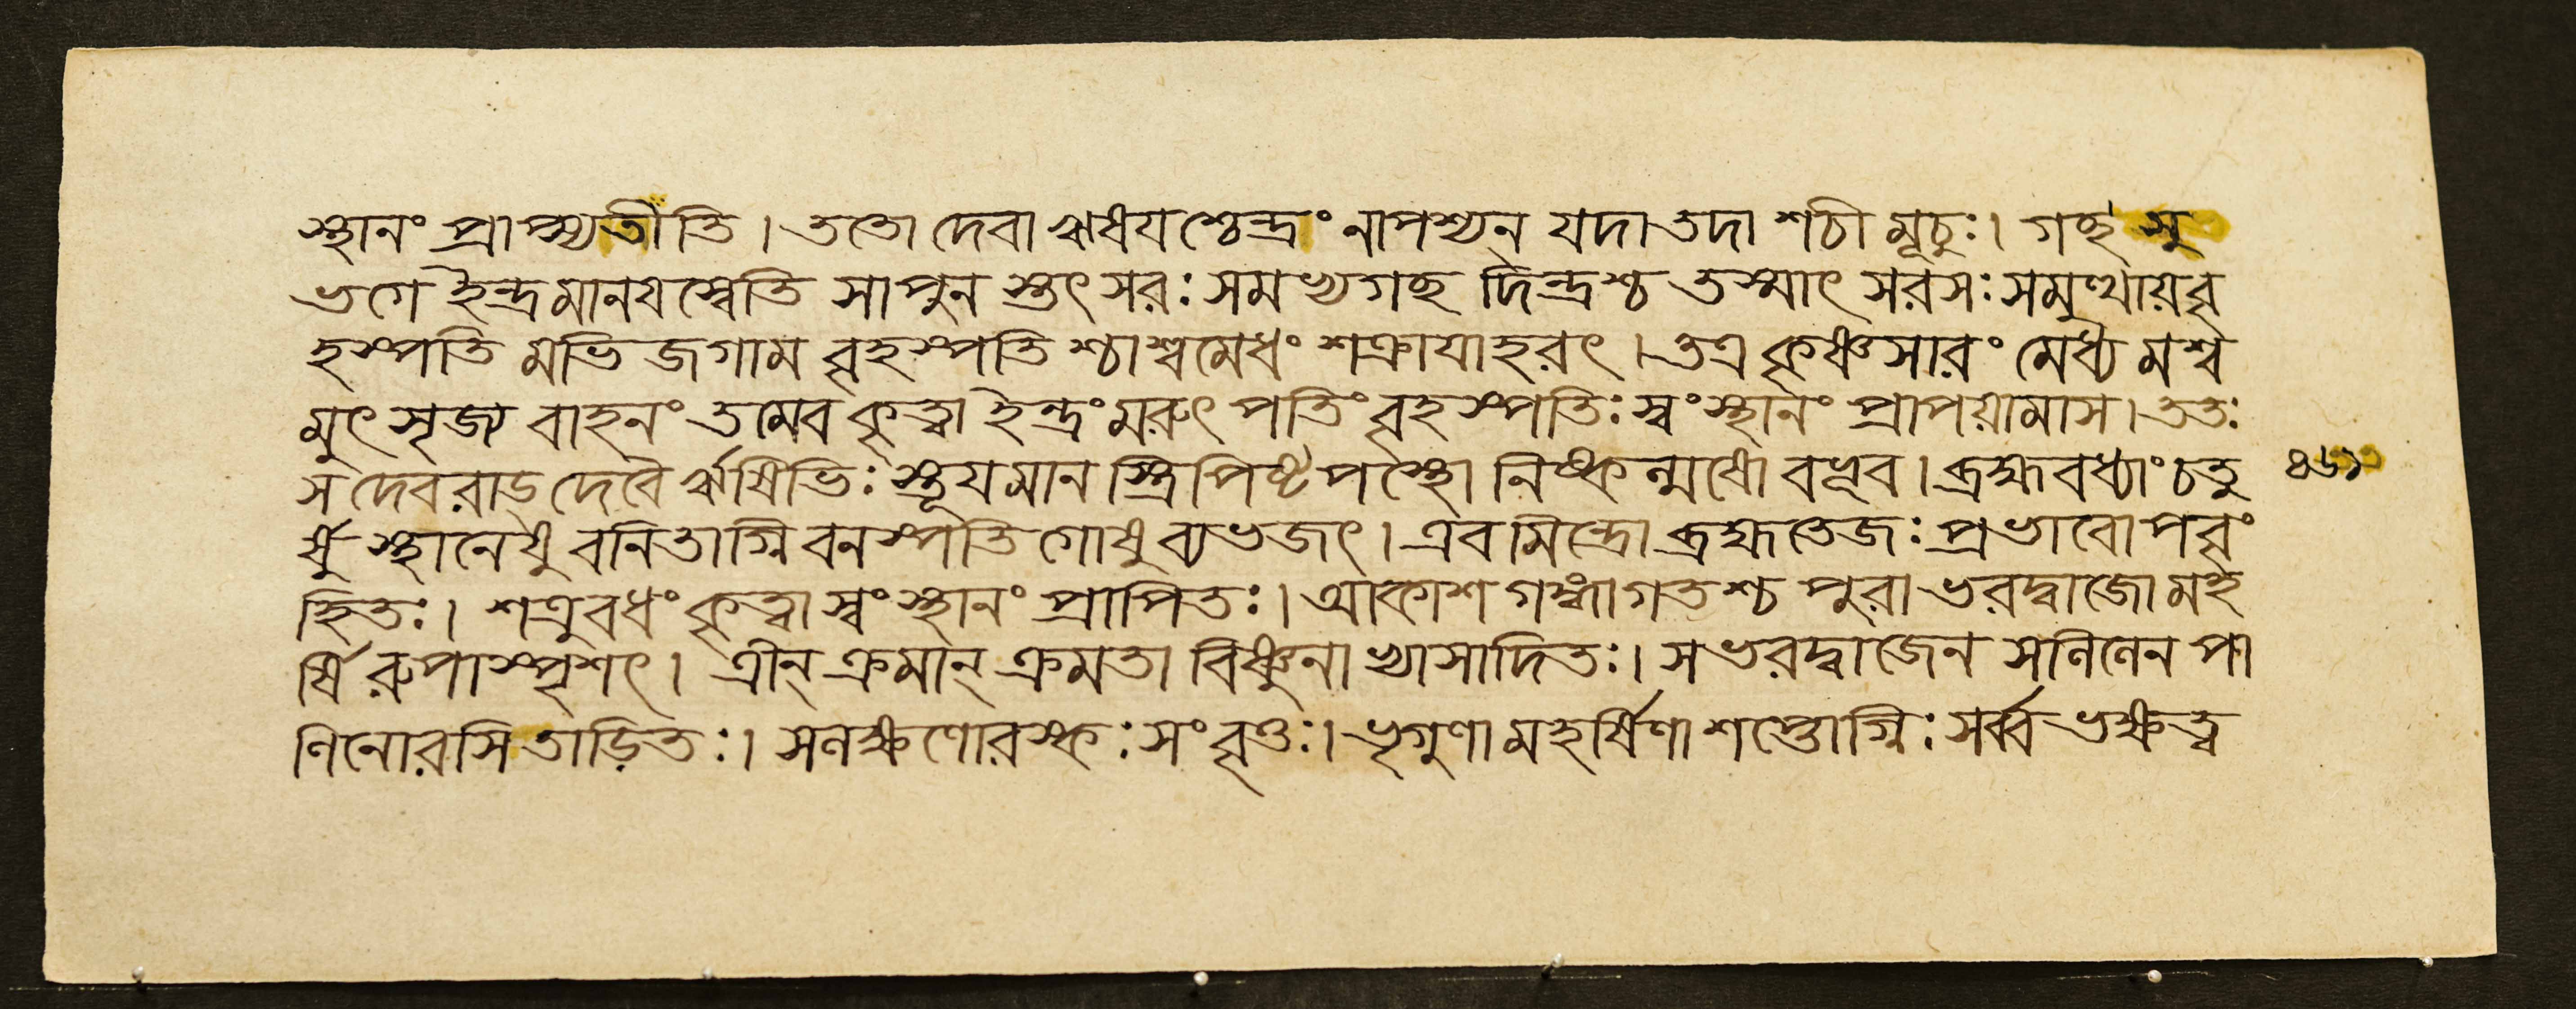 স্থানং প্রাপ্স্যতীতি । ততো দেবা ঋষযশ্চেন্দ্রং নাপশ্যন্ যদা তদা শচী মূচুঃ । গচ্ছ সু
ভগে ইন্দ্রমানযস্বেতি সা পুনস্তৎ সরঃ সমভ্যগচ্ছদিন্দ্রশ্চ তস্মাৎ সরসঃ সমুত্থায় বৃ
হস্পতি মভি জগাম বৃহস্পতি শ্চাশ্বমেধং শক্রাযাহরৎ । তত্র কৃষ্ণসারং মেধ্য মশ্ব
মুৎসৃজ্য বাহনং তমেব কৃত্বা ইন্দ্রং মরুৎ পতিং বৃহস্পতিঃ স্বং স্থানং প্রাপয়ামাস । ততঃ
স দেবরাড দেবৈ র্ঋষিভিঃ স্তূযমান স্ত্রিপিষ্টপস্থো নিষ্কল্মষো বভূব । ব্রহ্মবধ্যাং চতু
র্ষু স্থানেষু বনিতাগ্নি বনস্পতি গোষু ব্যভজৎ । এবমিন্দ্রো ব্রহ্মতেজঃ প্রভাবোপবৃং
হিতঃ । শত্রুবধং কৃত্বা স্বং স্থানং প্রাপিতঃ । আকাশ গঙ্গাগতশ্চ পুরা ভরদ্বাজো মহ
র্ষি রুপাস্পৃশৎ । ত্রীন্ ক্রমান্ ক্রমতা বিষ্ণুনা ভ্যাসাদিতঃ । স ভরদ্বাজেন সলিলেন পা
ণিনোরসি তাড়িতঃ । সলক্ষণোরস্কঃ সংবৃত্তঃ । ভৃগুণা মহর্ষিণা শপ্তোগ্নিঃ সর্ব্ব ভক্ষত্ব
৪৬১